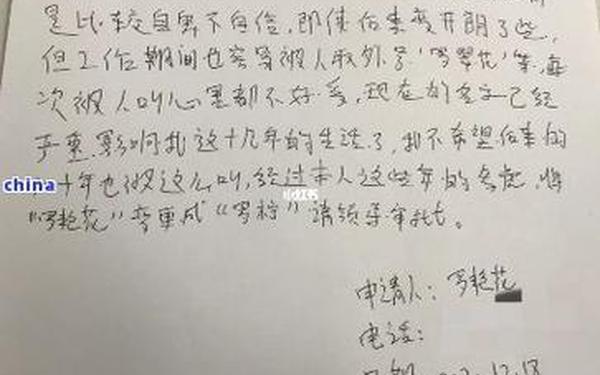 是比较自卑不自信，即使后来变开朗了些，
但工作期间也容易被人取外号“罗翠花”等，每
次被人叫心里都不好受，现在的名字已经
严重影响我这十几年的生活了，我不希望后来的
十年也被这么叫，经过本人这些年的考虑，将
“罗艳花”变更成“罗柠”请领导审批。
china
小红书
申请人：罗艳花
电话：
12.18